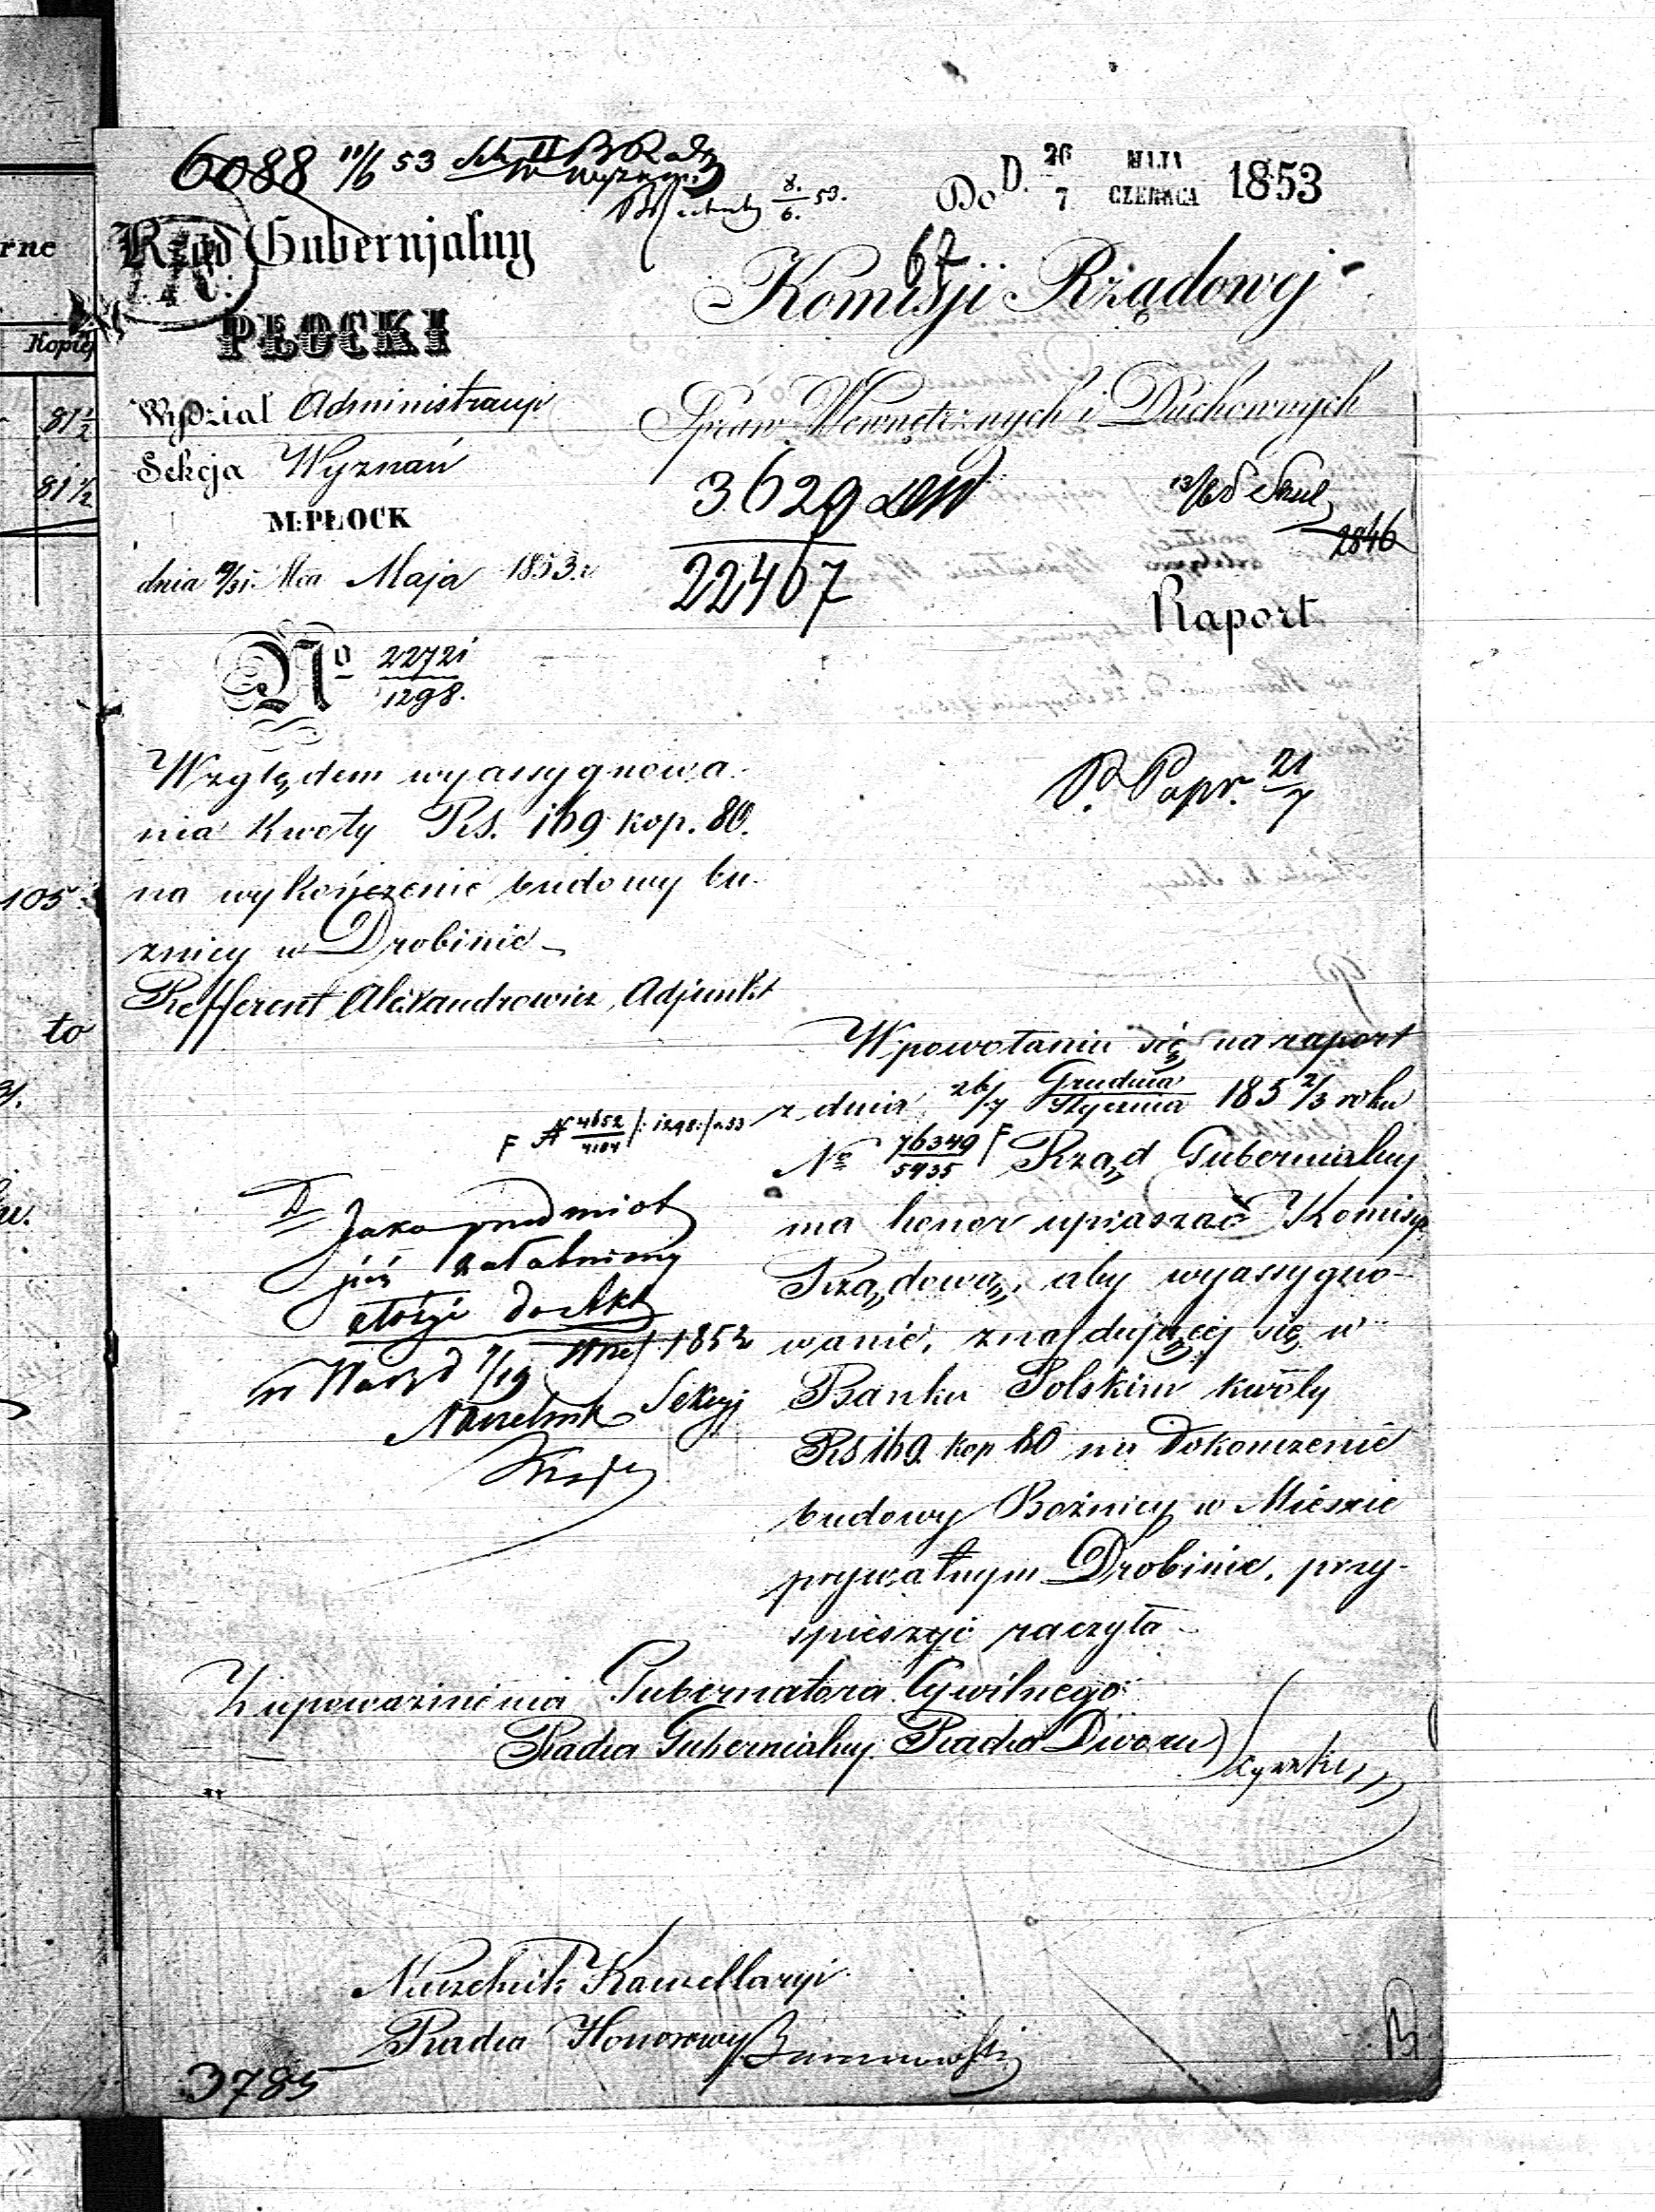 6088 11/6 53
8./6. 53.
Do D. 26/7 MAJA/CZERWCA 1853
67
Rząd Gubernjalny
PŁOCKI
Komisji Rządowej
Wydział Administracyi
Spraw Wewnętrznych i Duchownych
Sekcja Wyznań
3629
22467
2846
M: PŁOCK
dnia 19/31 Mca Maja 1853 r.
Raport
No 22721/1298.
Względem wyassygnowa-
nia kwoty Rs. 169 kop. 80.
na wykończenie budowy bu-
znicy w Drobinie
Refferent Alexandrowicz, Adjunkt
P. Papr. 21/7
W powołaniu się na raport
z dnia 26/7 Grudnia/Stycznia 185 2/3 roku
No 76349/5935 F Rząd Gubernialny
ma honor upraszać Komisyę
Rządową, aby wyassygno-
wanie, znajdującej się w
Banku Polskim kwoty
Rs 169 kop 80 na dokończenie
budowy Bożnicy w Mieście
prywatnym Drobinie, przy-
spieszyć raczyła
F N 4652/4104 /: 1298:/ 53
Jako przedmiot
już załatwiony
złożyć do akt
w Warsz d 7/19 1853
Naczelnik Sekcyi
Z upoważnienia Gubernatora Cywilnego
Radca Gubernialny Radca Dworu
Naczelnik Kancellaryi
Radca Honorowy
3785
rne
Kopiej
81 1/2
81 1/2
105
to